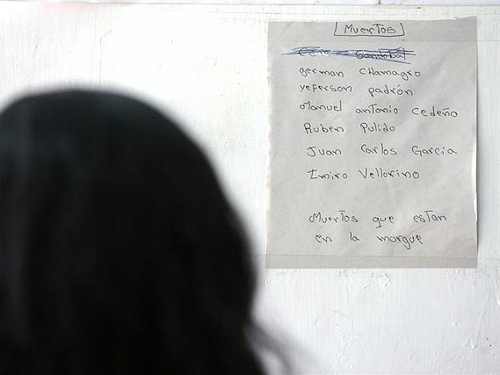 Muertos
Sandoval
german Chamagro
yeferson padrón
Manuel antonio Cedeño
Ruben Pulido
Juan Carlos Garcia
Imiro Vellorino
Muertos que estan
en la morgue